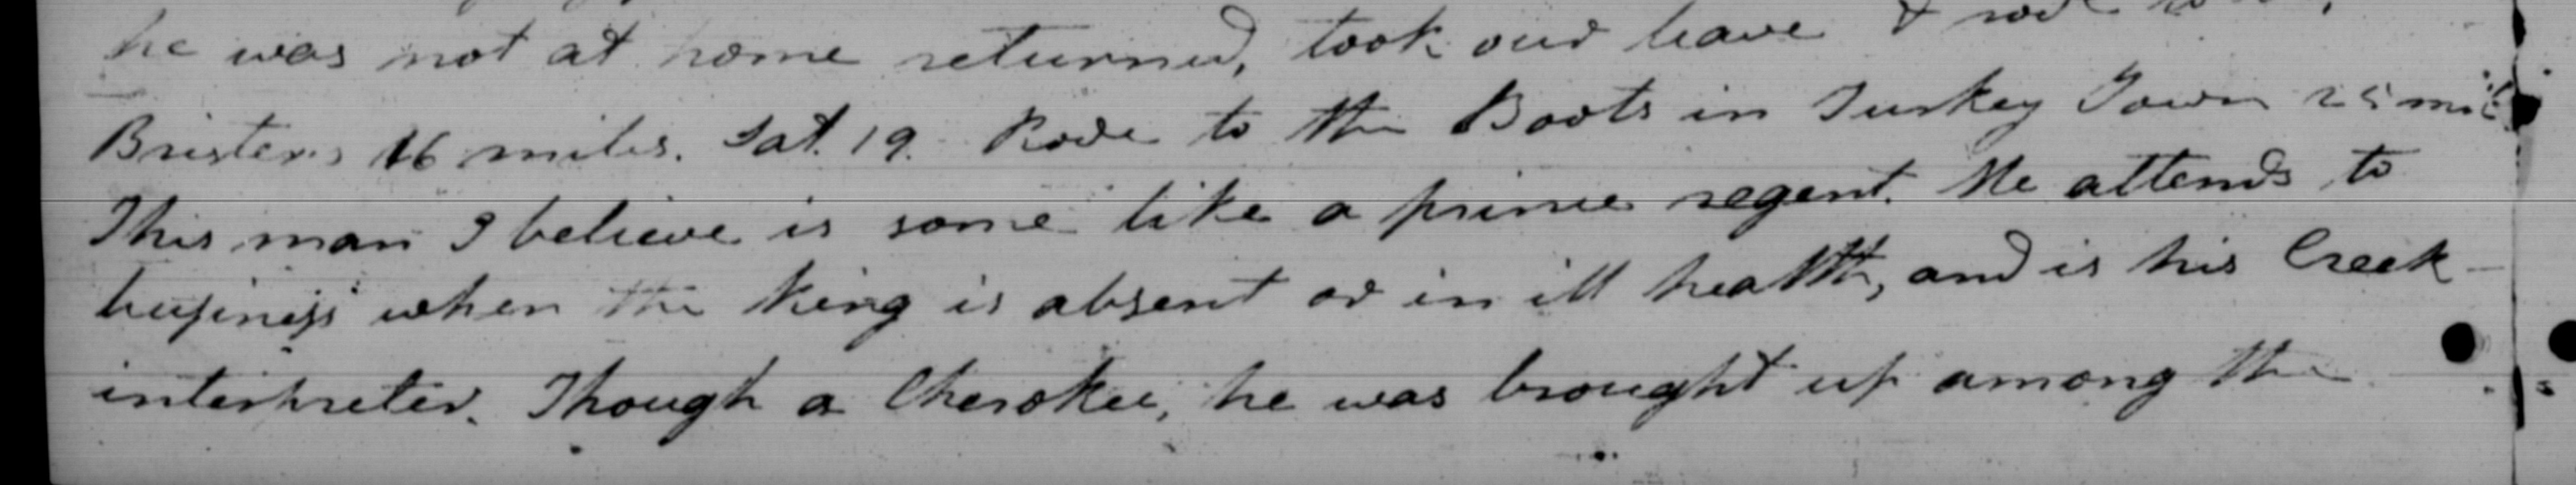 he was not at home returned, took our leave & rode to
Bristers 16 miles. Sat. 19. Rode to the Boots in Turkey Town 25 mil
This man I believe is some like a prince regent. He attends to
business when the king is absent or in ill health, and is his Creek
interpreter. Though a Cherokee, he was brought up among the